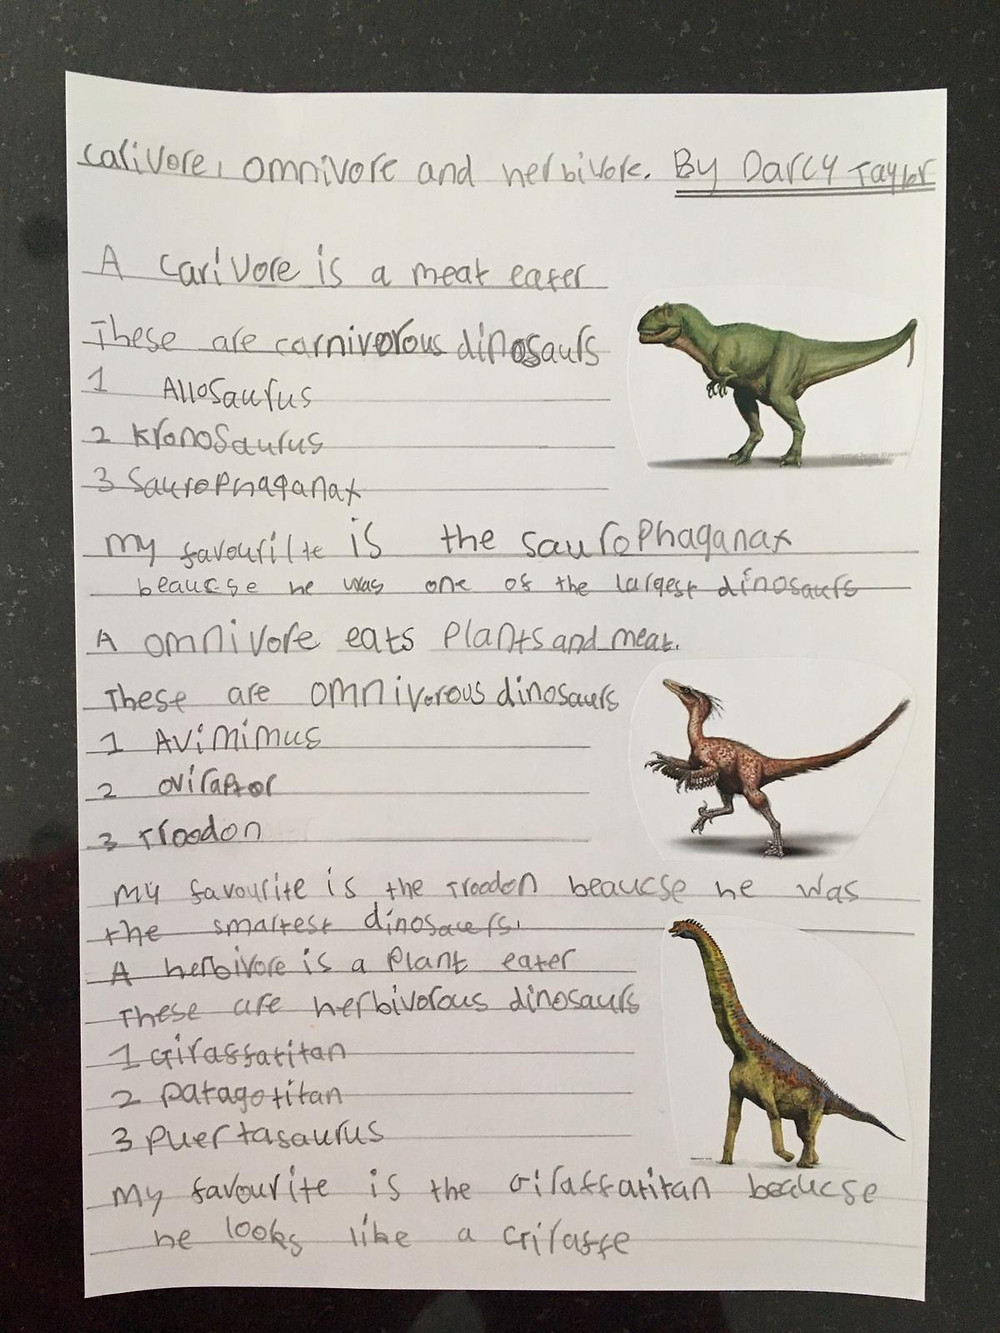 carivore, omnivore and herbivore. By Darcy Taylor
A carivore is a meat eater
These are carnivorous dinosaurs
1 Allosaurus
2 kronosaurus
3 Saurophaganax
my favourilte is the saurophaganax
beausse he was one of the largest dinosaurs
A omnivore eats plants and meat.
These are omnivorous dinosaurs
1 Avimimus
2 oviraptor
3 Troodon
my favourite is the Troodon beaucse he was
the smartest dinosaurs.
A herbivore is a plant eater
These are herbivorous dinosaurs
1 Giraffatitan
2 patagotitan
3 puertasaurus
my favourite is the Giraffatitan beaucse
he looks like a Giraffe